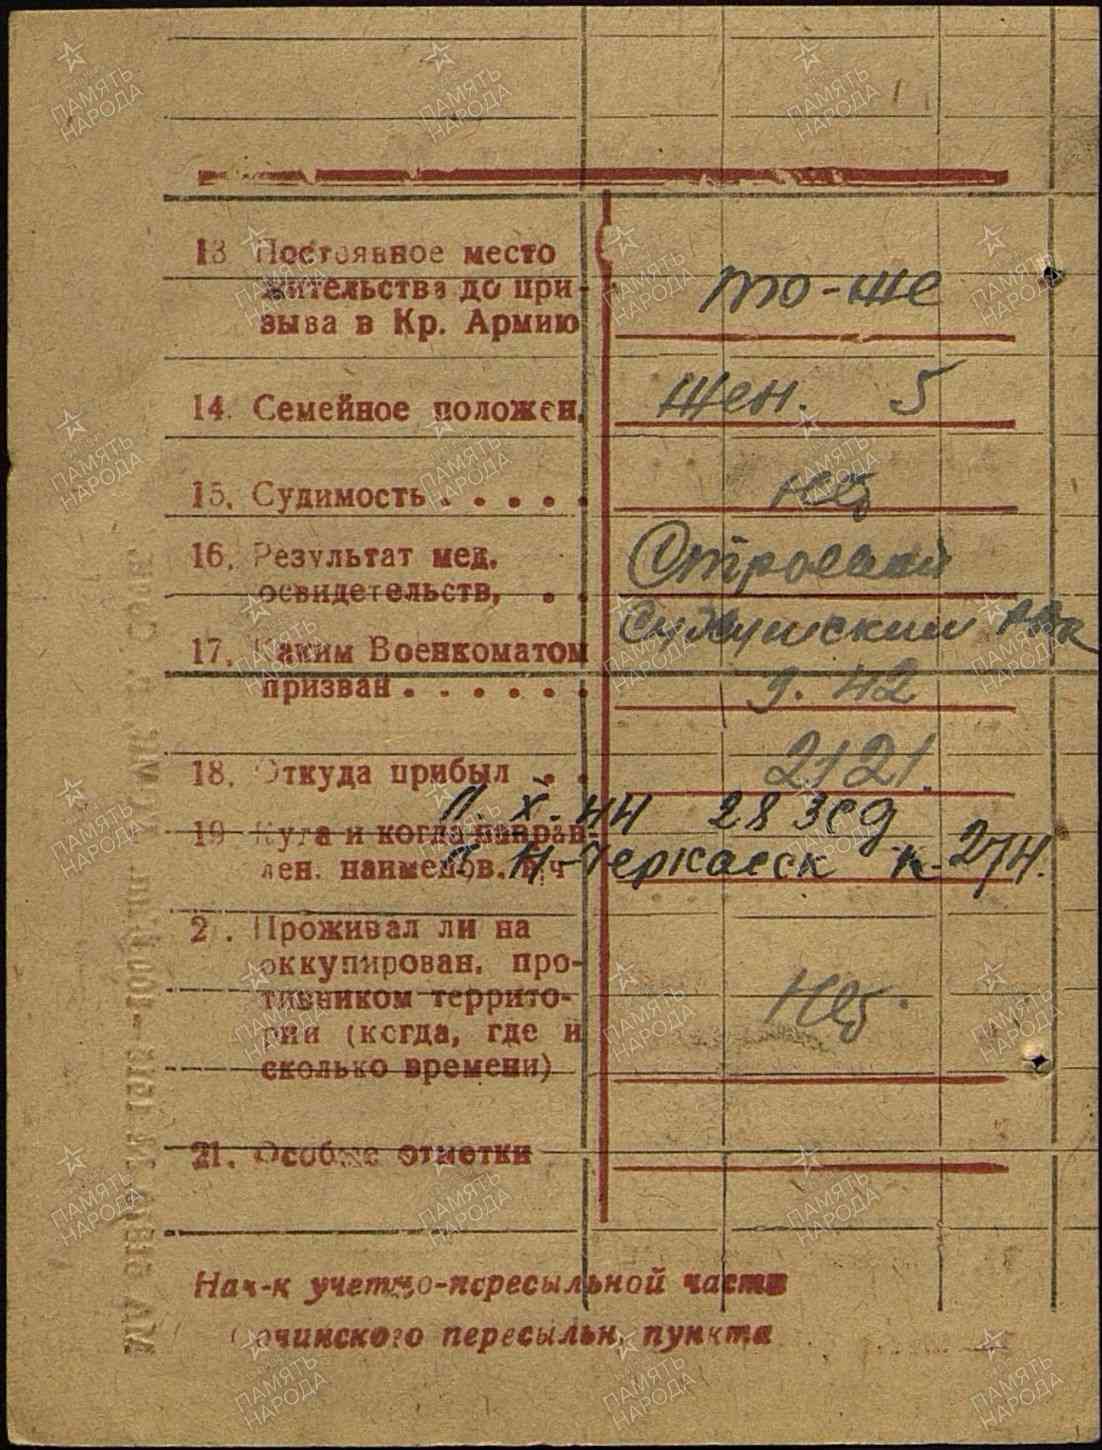 13 Постоянное место
жительства до при-
зыва в Кр. Армию
то-же
14. Семейное положен.
жен. 5
15. Судимость . . . . .
нет
16. Результат мед.
освидетельств, . .
Строевой
17. Каким Военкоматом
призван . . . . . .
Сухумский РВК
9. 42
18. Откуда прибыл . .
2121.
19 Куда и когда направ-
лен. наименов. в/ч
11. X. 44 28 зсд
г. Н-Черкасск к-274.
2 . Проживал ли на
оккупирован. про-
тивником террито-
рии (когда, где и
сколько времени)
Нет.
21. Особые отметки
Нач-к учетно-пересыльной части
Сочинского пересыльн. пункта
ПАМЯТЬ
НАРОДА